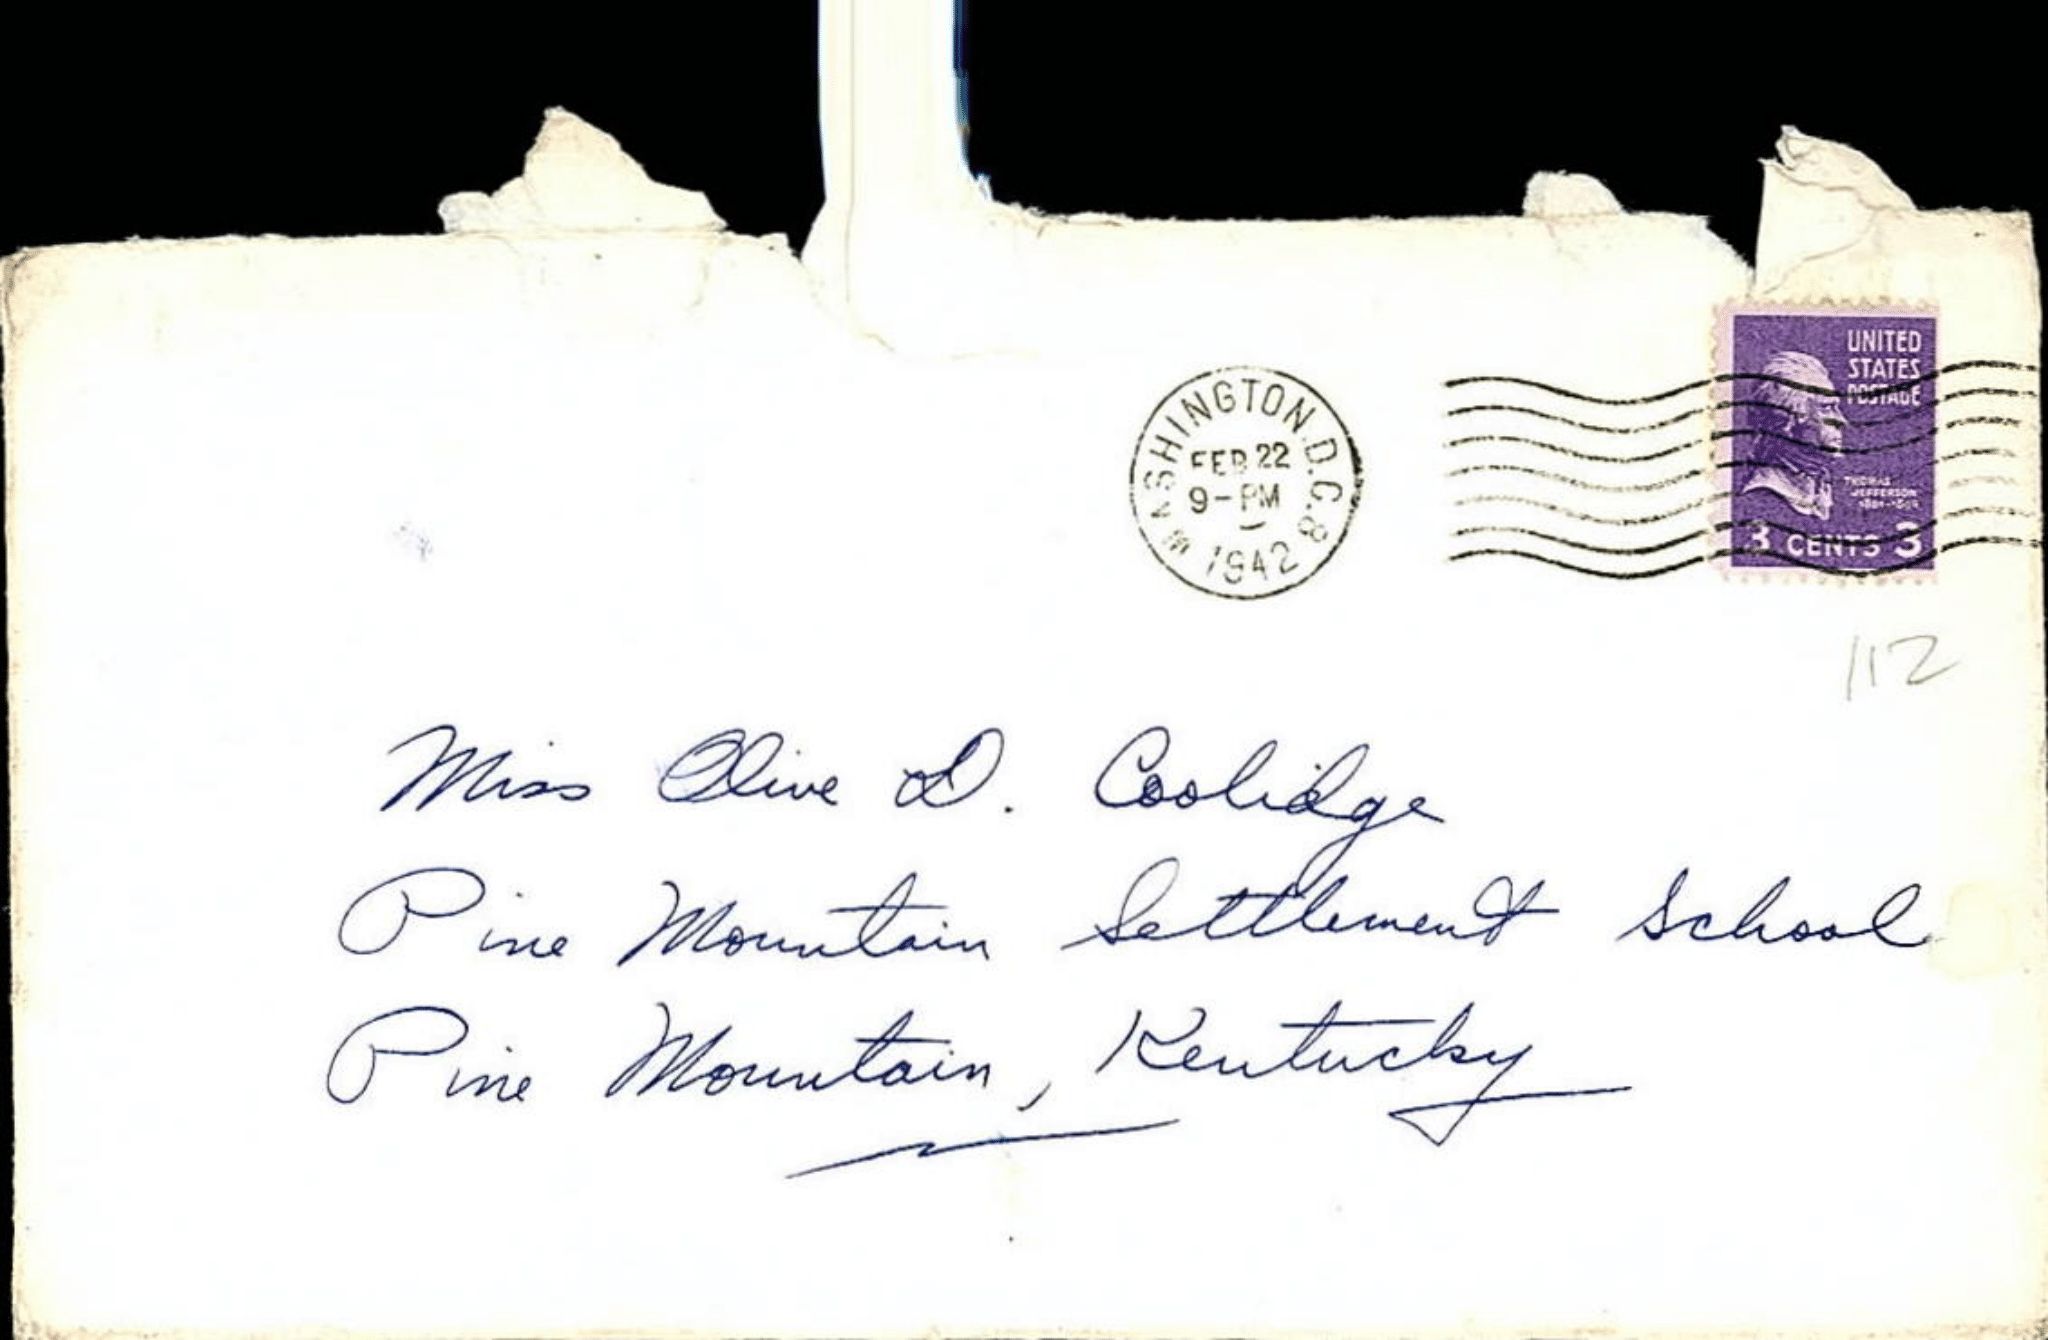 UNITED
STATES
POSTAGE
THOMAS
JEFFERSON
3 CENTS 3
WASHINGTON, D.C. 8
FEB 22
9-PM
1942
112
Miss Olive D. Coolidge
Pine Mountain Settlement School
Pine Mountain, Kentucky